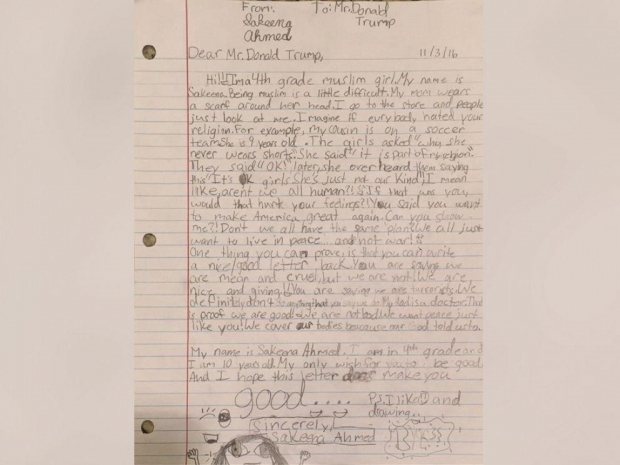 From: To: Mr. Donald
Sakeena Trump
Ahmed
Dear Mr. Donald Trump, 11/3/16
Hi!! I'm a 4th grade muslim girl. My name is
Sakeena. Being muslim is a little difficult. My mom wears
a scarf around her head. I go to the store and people
just look at me. Imagine if eurybody hated your
religion. For example, my cousin is on a soccer
team. She is 9 years old. The girls asked "why she
never wears shorts." She said "it is part of my religion".
They said "OK!" later, she over heard them saying
this "It's ok girls she's just not our kind". I mean
like, arent we all human?! If that was you,
would that hurt your feelings?! You said you want
to make America great again. Can you show
me?! Don't we all have the same plan? We all just
want to live in peace.... and not war!!
One thing you can prove, is that you can write
a nice/good letter back. You are saying we
are mean and cruel, but we are not! We are
nice and giving! You are saying we are terrorists. We
definitely don't My dad is a doctor. That
is proof we are good. We are not bad. We want peace just
like you! We cover our bodies because our God told us to.
My name is Sakeena Ahmed. I am in 4th grade and
I am 10 years old. My only wish for you to be good.
And I hope this letter does make you
good....
P.S. I like and
drawing...
Sincerely,
Sakeena Ahmed